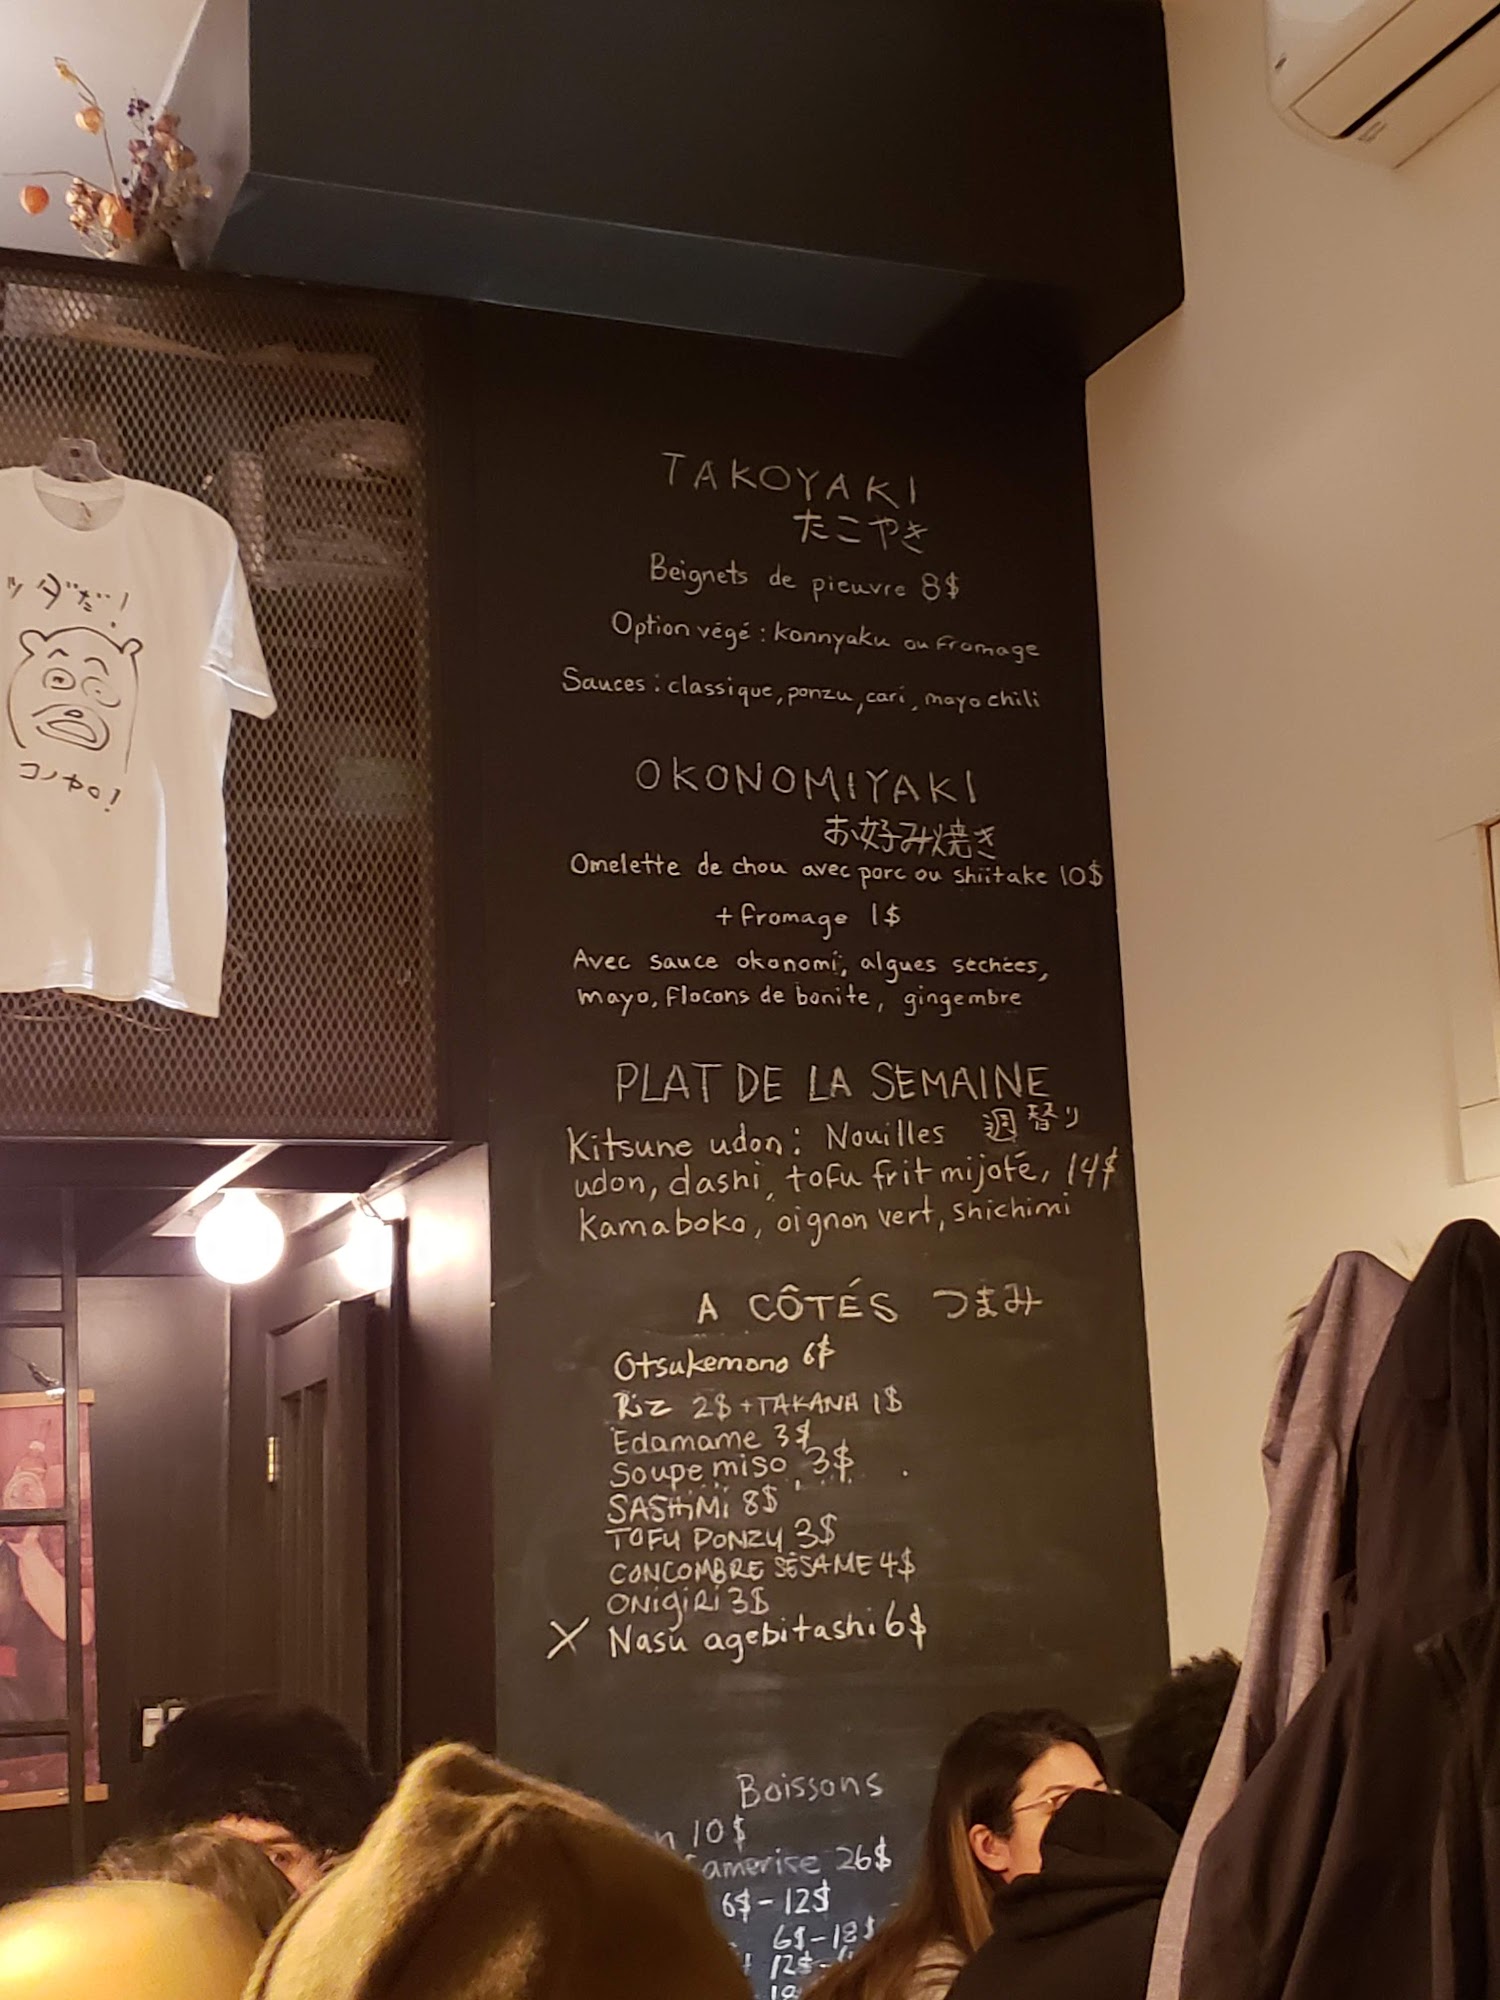 ツダだ!
コノヤロ!
TAKOYAKI
たこやき
Beignets de pieuvre 8$
Option végé : konnyaku ou fromage
Sauces : classique, ponzu, cari, mayo chili
OKONOMIYAKI
お好み焼き
Omelette de chou avec porc ou shiitake 10$
+ fromage 1$
Avec sauce okonomi, algues séchées,
mayo, flocons de bonite, gingembre
PLAT DE LA SEMAINE
週替り
Kitsune udon : Nouilles
udon, dashi, tofu frit mijoté, 14$
kamaboko, oignon vert, shichimi
A CÔTÉS つまみ
Otsukemono 6$
Riz 2$ + TAKANA 1$
Edamame 3$
Soupe miso 3$
SASHIMI 8$
TOFU PONZU 3$
CONCOMBRE SÉSAME 4$
ONIGIRI 3$
X Nasu agebitashi 6$
Boissons
10$
camerise 26$
6$-12$
6$-18$
12$-
18